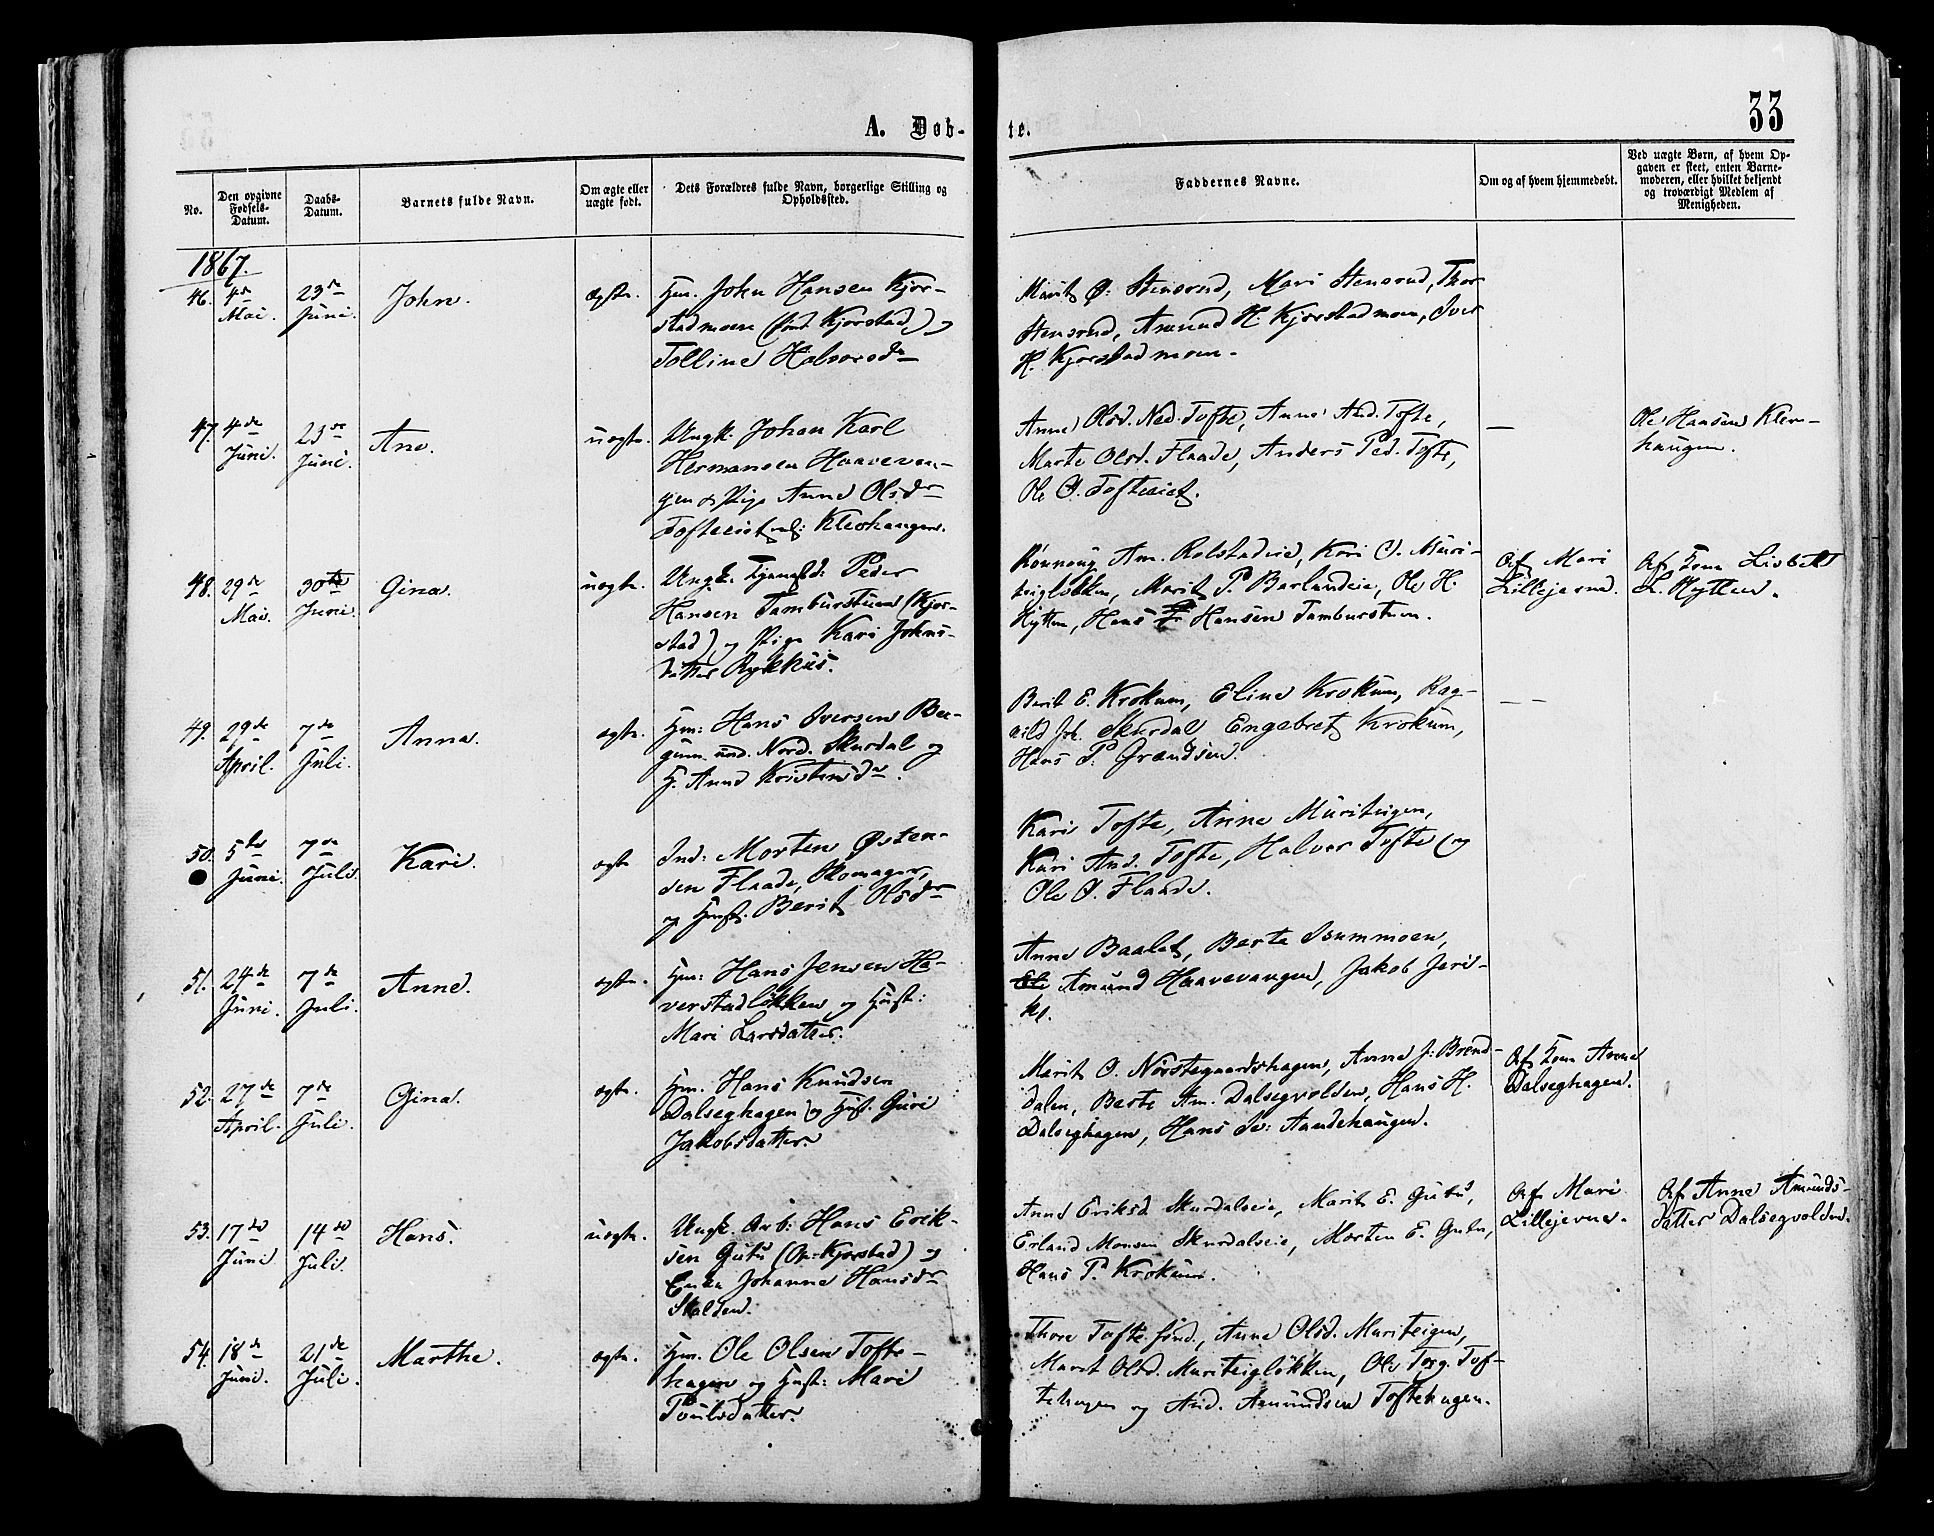 A. Døb-
te.
33
No.
Den opgivne
Fødsels-
Datum.
Daabs-
Datum.
Barnets fulde Navn.
Om ægte eller
uægte født.
Dets Forældres fulde Navn, borgerlige Stilling og
Opholdssted.
Faddernes Navne.
Om og af hvem hjemmedøbt.
Ved uægte Børn, af hvem Op-
gaven er skeet, enten Barne-
moderen, eller hvilket bekjendt
og troværdigt Medlem af
Menigheden.
1867.
46. 4de Mai. 23de Juni. John. ægte.
Hm. John Hansen Kjør-
stadmoen (født Kjørstad) og
Tolline Halvorsdr
Marit Ø. Stensrud, Mari Stensrud, Thor
Stensrud, Amund H. Kjørstadmoen, Iver
H. Kjørstadmoen.
47. 4de Juni. 23de Juni. Ane. uægte.
Ungk. Johan Karl
Hermansen Haaveven-
gen & Pige Anne Olsdr
Tofteeiet Kleivhaugen.
Anne Olsd. Ned. Tofte, Anne And. Tofte,
Marte Olsd. Flaade, Anders Ped. Tofte,
Ole O. Tofteeiet.
—
Ole Hansen Klev-
haugen.
48. 29de Mai. 30te Juni. Gina. uægte.
Ungk. Tjenestk: Peder
Hansen Tamburstuen (Kjør-
stad), og Pige Kari Johns-
datter Rykhus.
Rønnoug Am. Rolstadeie, Kari O. Muri-
teigløkken, Marit P. Barlundeie, Ole H.
Hytten, Hans Hansen Tamburstuen.
Af Mari
Lillejevne.
Af Kone Lisbeth
L. Hytten.
49. 29de April. 7de Juli. Anna. ægte.
Hm: Hans Iversen Bæ-
und. Nord. Skurdal og
H. Anne Kristensdr.
Berit E. Krokum, Eline Krokum, Rag-
nild Joh. Skurdal Engebret Krokum,
Hans P. Grandsen.
— —
50. 5te Juni. 7de Juli. Kari. ægte
Ind: Morten Østen-
sen Flaade, Skomager,
og Hust. Berit Olsdr
Kari Tofte, Anne Muriteigen,
Kari And. Tofte, Halvor Tofte og
Ole O. Flaade.
51. 24de Juni. 7de Juli. Anne. ægte.
Hm: Hans Jensen Ha-
verstadløkken og Hust:
Mari Larsdatter.
Anne Baalet, Berte Isummoen,
Amund Haavevangen, Jakob Jeri-
ko.
52. 27de April. 7de Juli. Gina. ægte.
Hm. Hans Knudsen
Dalseghagen og Hust. Guri
Jakobsdatter
Marit O. Nørstegaardshagen, Anne J. Brend-
dalen, Berte Am. Dalsegvolden, Hans H.
Dalseghagen, Hans Iv: Aandehaugen.
Af Kone Anne
Dalseghagen.
53. 17de Juni 14de Juli. Hans. uægte.
Ungk. Arb: Hans Erik-
sen Gutu (Op. Kjørstad) og
Enke Johanne Hansdr
Skalden.
Anne Eriksd Skurdalseie, Marit E. Gutu,
Erland Monsen Skurdalseie, Morten E. Gutu,
Hans P. Krokum.
Af Mari
Lillejevne.
Af Anne Amunds-
datter Dalsegvolden.
54. 18de Juni. 21de Juli. Marthe. ægte.
Hm. Ole Olsen Tofte-
hagen og Hust: Mari
Poulsdatter.
Thore Tofte sønd., Anne Olsd. Muriteigen,
Marit Olsd. Muriteigløkken, Ole Torg. Tof-
tehagen og And. Amundsen Toftehagen.